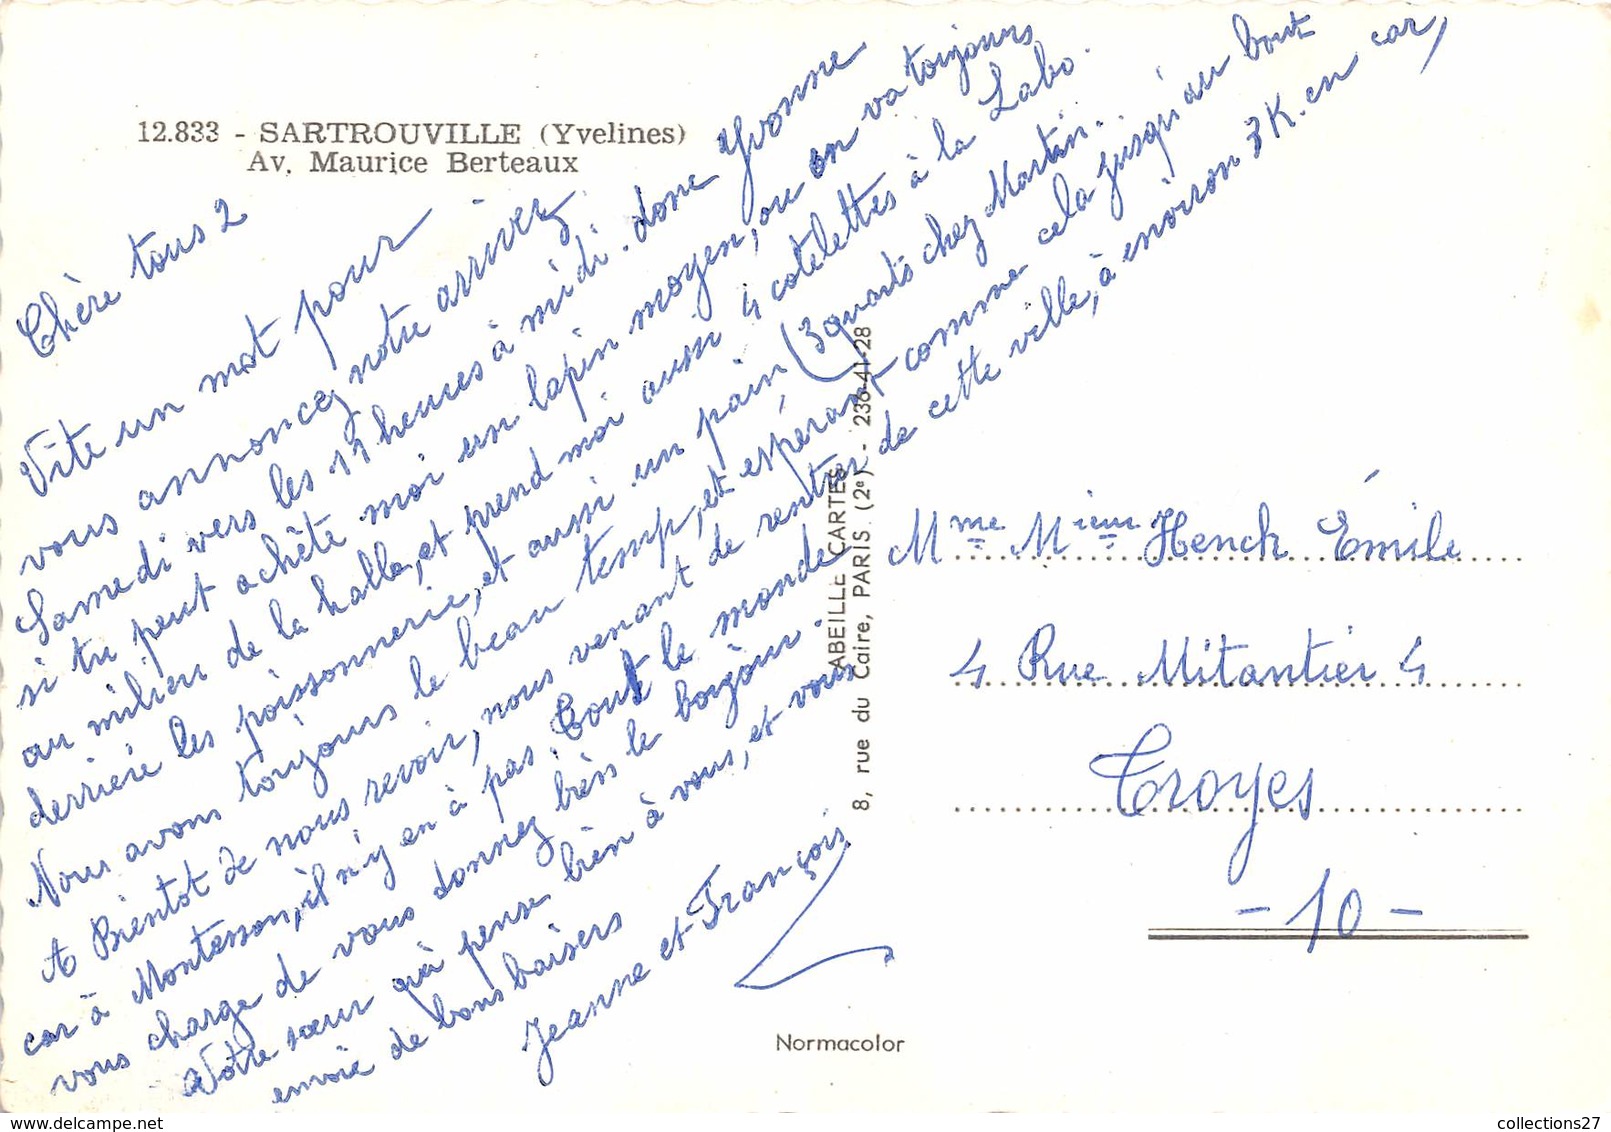 12.833 - SARTROUVILLE (Yvelines)
Av. Maurice Berteaux
Chère tous 2
Vite un mot pour
vous annoncez notre arrivez
Samedi vers les 11 heures à midi. donc Yvonne
si tu peut achête moi un lapin moyen, ou on va toujours
au milieu de la halle, et prend moi aussi 4 cotelettes à la Labo.
derrière les poissonnerie, et aussi un pain, (3 quarts chez Martin.
Nous avons toujours le beau temp, et espérant comme cela jusqu'au bout
A Bientot de nous revoir, nous venant de rentrer de cette ville, à environ 3 K. en car,
car à Montesson, il n'y en à pas. Tout le monde
vous charge de vous donnez bien le bonjour.
Votre sœur qui pense bien à vous, et vous
envoie de bons baisers
Jeanne et François
ABEILLE-CARTES
8, rue du Caire, PARIS (2e) - 236-41-28
Mme Mieur Hench Émile
4 Rue Mitantier 4
Troyes
- 10 -
Normacolor
collections27